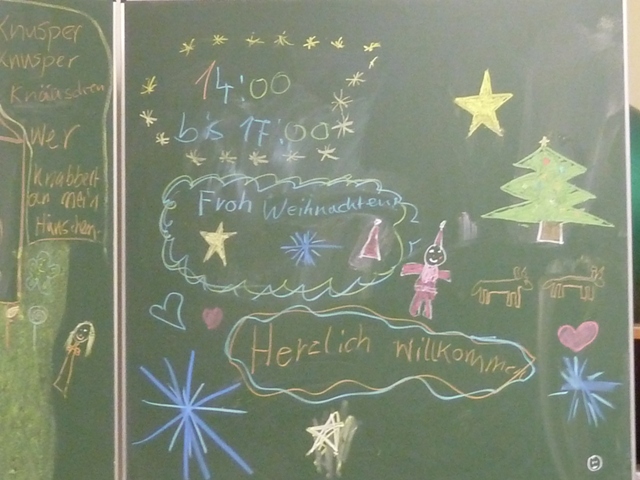 Knusper
Knusper
Knäuschen
Wer
Knabbert
an mein
Häuschen
14:00
bis 17:00
Froh Weihnachten
Herzlich Willkommen